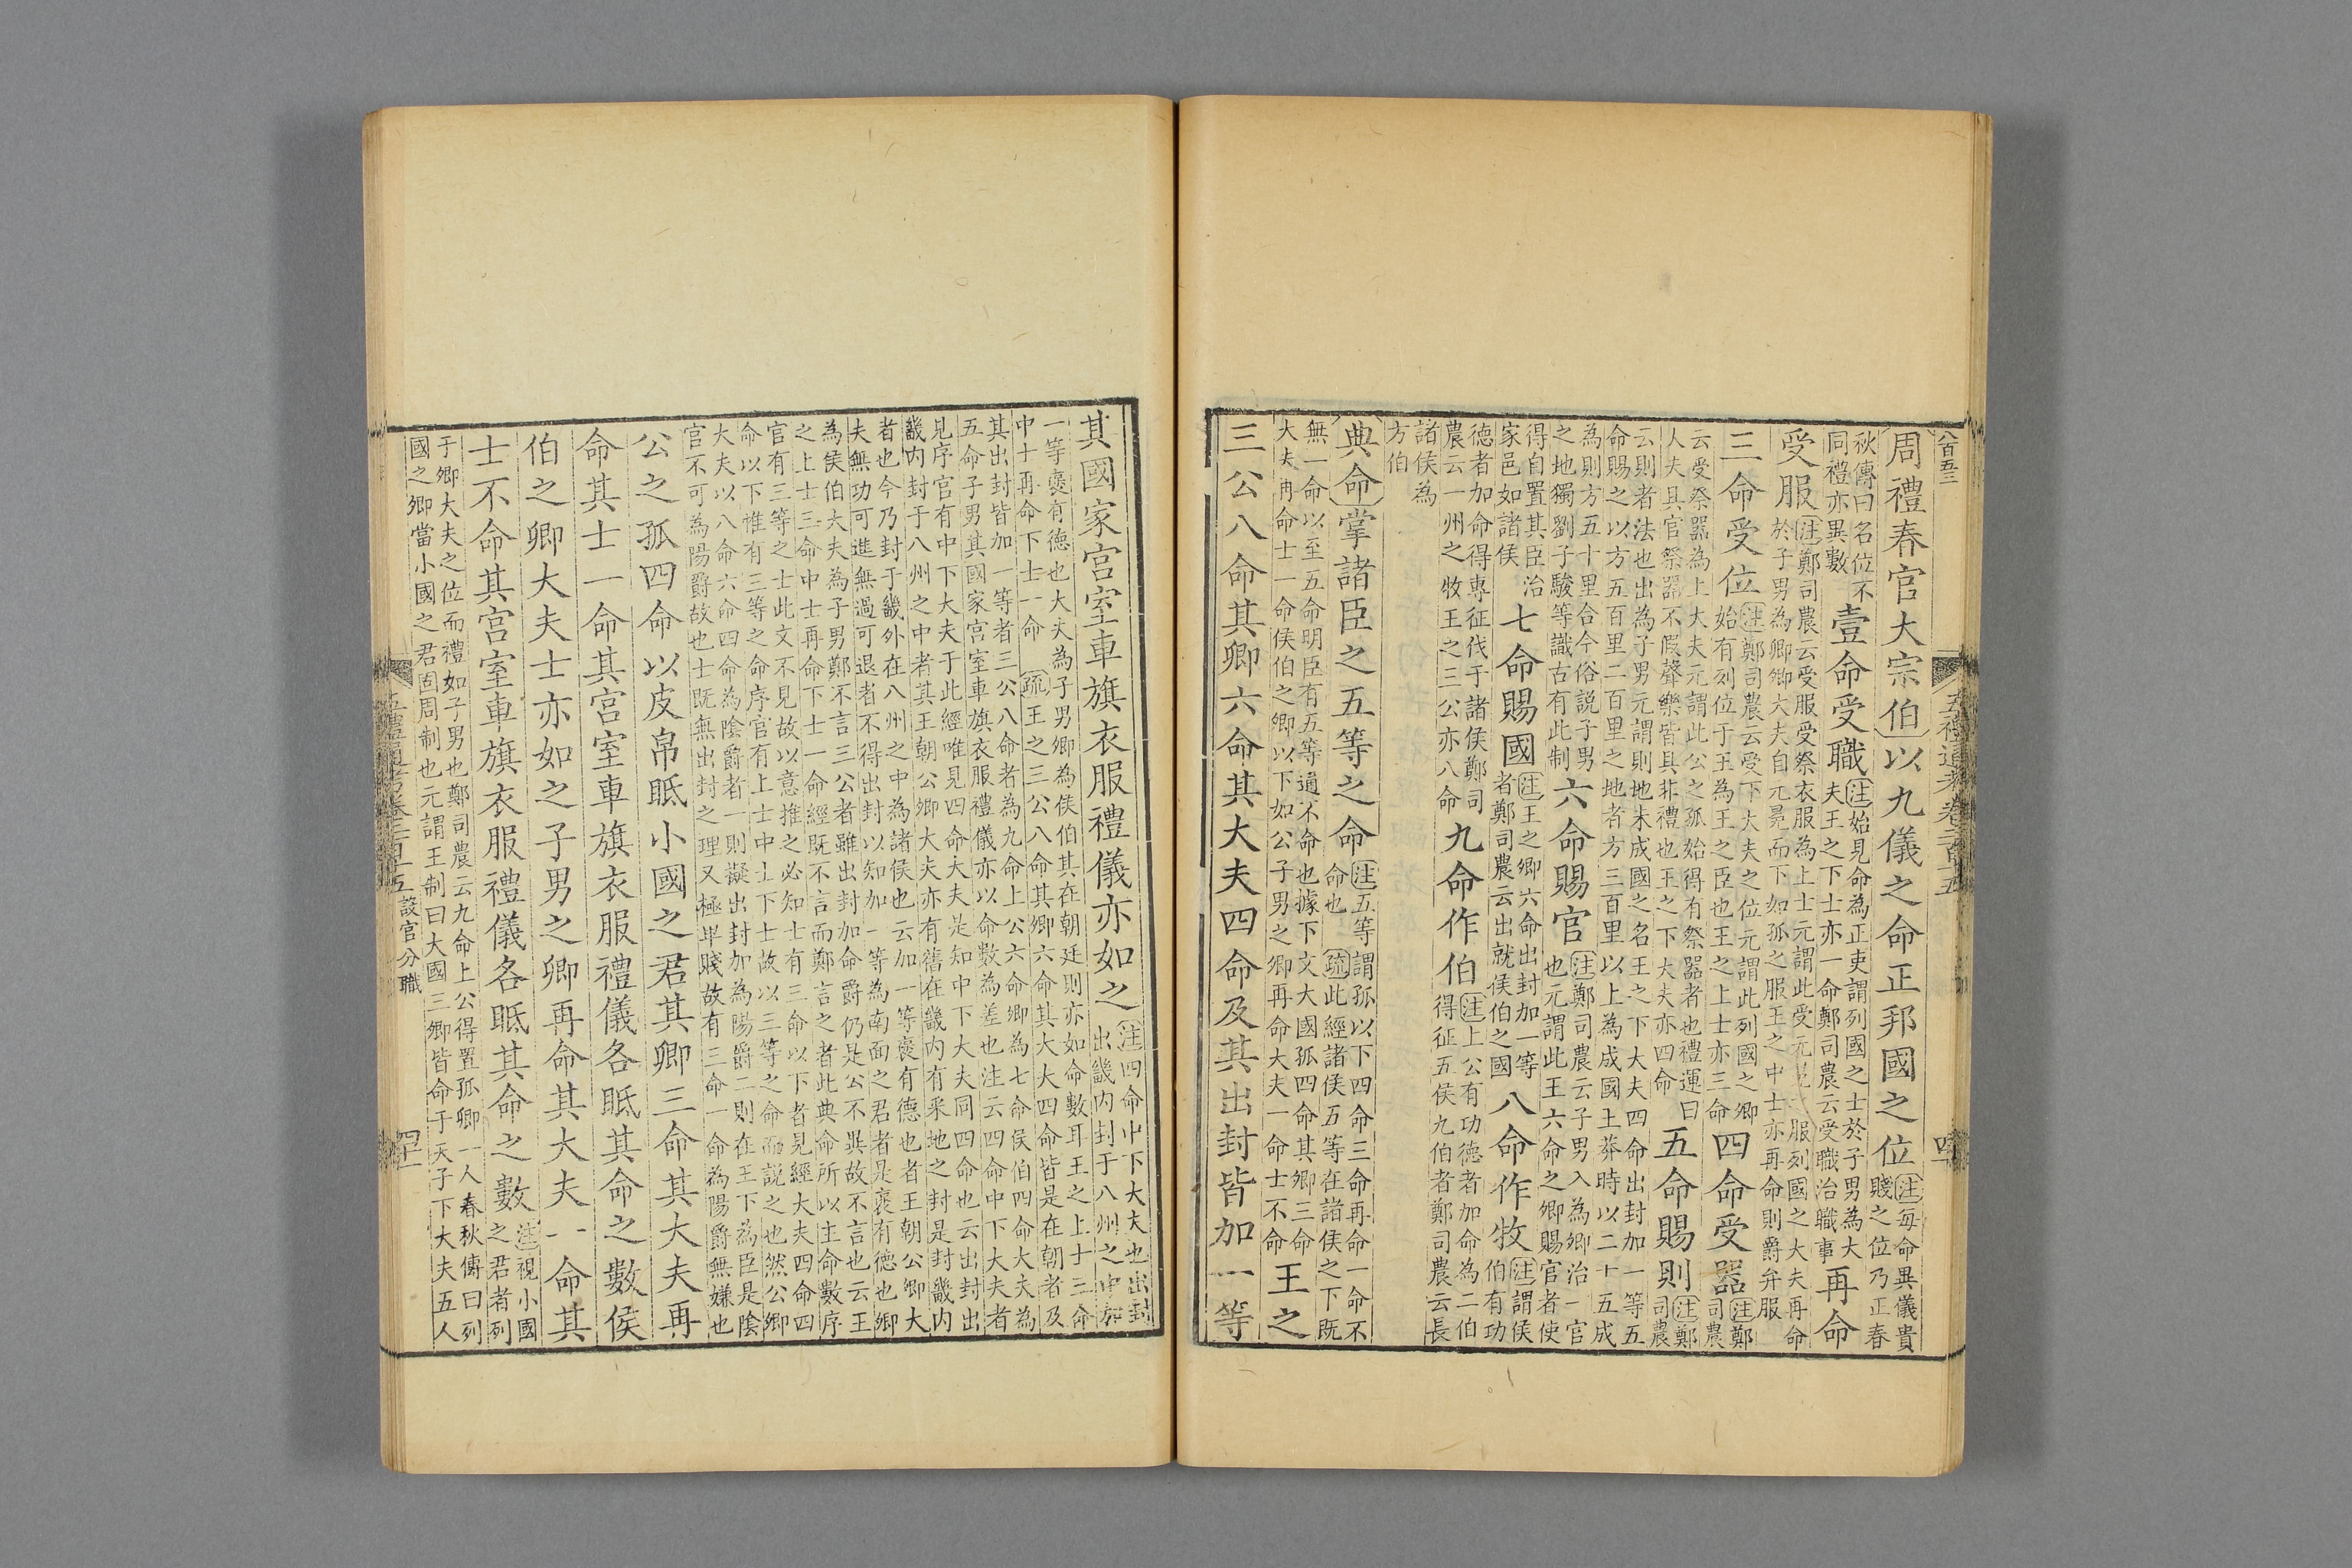 八百五三
五禮通考卷二百十五
四十
周禮春官大宗伯以九儀之命正邦國之位注每命異儀貴賤之位乃正春
秋傳曰名位不同禮亦異數壹命受職注始見命為正吏謂列國之士於子男為大夫王之下士亦一命鄭司農云受職治職事再命
受服注鄭司農云受服受祭衣服為上士元謂此受元冕之服列國之大夫再命於子男為卿卿大夫自元冕而下如孤之服王之中士亦再命則爵弁服
三命受位注鄭司農云受下大夫之位元謂此列國之卿始有列位于王為王之臣也王之上士亦三命四命受器注鄭司農
云受祭器為上大夫元謂此公之孤始得有祭器者也禮運曰大夫具官祭器不假聲樂皆具非禮也王之下大夫亦四命五命賜則注鄭司農
云則者法也出為子男元謂則地未成國之名王之下大夫四命出封加一等五命賜之以方五百里二百里之地者方三百里以上為成國王莽時以二十五成
為則方五十里合今俗說子男之地獨劉子駿等識古有此制六命賜官注鄭司農云子男入為卿治一官也元謂此王六命之卿賜官者使
得自置其臣治家邑如諸侯七命賜國注王之卿六命出封加一等者鄭司農云出就侯伯之國八命作牧注謂侯伯有功
德者加命得專征伐于諸侯鄭司農云一州之牧王之三公亦八命九命作伯注上公有功德者加命為二伯得征五侯九伯者鄭司農云長
諸侯為方伯
典命掌諸臣之五等之命注五等謂孤以下四命三命再命一命不命也疏此經諸侯五等在諸侯之下既
無一命以至五命明臣有五等通不命也據下文大國孤四命其卿三命大夫再命士一命侯伯之卿以下如公子男之卿再命大夫一命士不命王之
三公八命其卿六命其大夫四命及其出封皆加一等
其國家宮室車旗衣服禮儀亦如之注四命中下大夫也出封出畿內封于八州之中加
一等褒有德也大夫為子男卿為侯伯其在朝廷則亦如命數耳王之上士三命中士再命下士一命疏王之三公八命其卿六命其大夫四命皆是在朝者及
其出封皆加一等者三公八命者為九命上公六命卿為七命侯伯四命大夫為五命子男其國家宮室車旗衣服禮儀亦以命數為差也注云四命中下大夫者
見序官有中下大夫于此經唯見四命大夫是知中下大夫同四命也云出封出畿內封于八州之中者其王朝公卿大夫亦有舊在畿內有采地之封是封畿內
者也今乃封于畿外在八州之中為諸侯也云加一等褒有德也者王朝公卿大夫無功可進無過可退者不得出封以知加一等為南面之君者是褒有德也卿
為侯伯大夫為子男鄭不言三公者雖出封加命爵仍是公不異故不言也云王之上士三命中士再命下士一命經既不言而鄭言之者此典命所以主命數序
官有三等之士此文不見故以意推之必知士有三命以下者見經大夫四命四命以下惟有三等之命序官有上士中士下士故以三等之命而說之也然公卿
大夫以八命六命四命為陰爵者一則擬出封加為陽爵二則在王下為臣是陰官不可為陽爵故也士既無出封之理又極卑賤故有三命一命為陽爵無嫌也
公之孤四命以皮帛眡小國之君其卿三命其大夫再
命其士一命其宮室車旗衣服禮儀各眡其命之數侯
伯之卿大夫士亦如之子男之卿再命其大夫一命其
士不命其宮室車旗衣服禮儀各眡其命之數注視小國之君者列
于卿大夫之位而禮如子男也鄭司農云九命上公得置孤卿一人春秋傳曰列國之卿當小國之君固周制也元謂王制曰大國三卿皆命于天子下大夫五人
五禮通考卷二百十五
設官分職
四十一